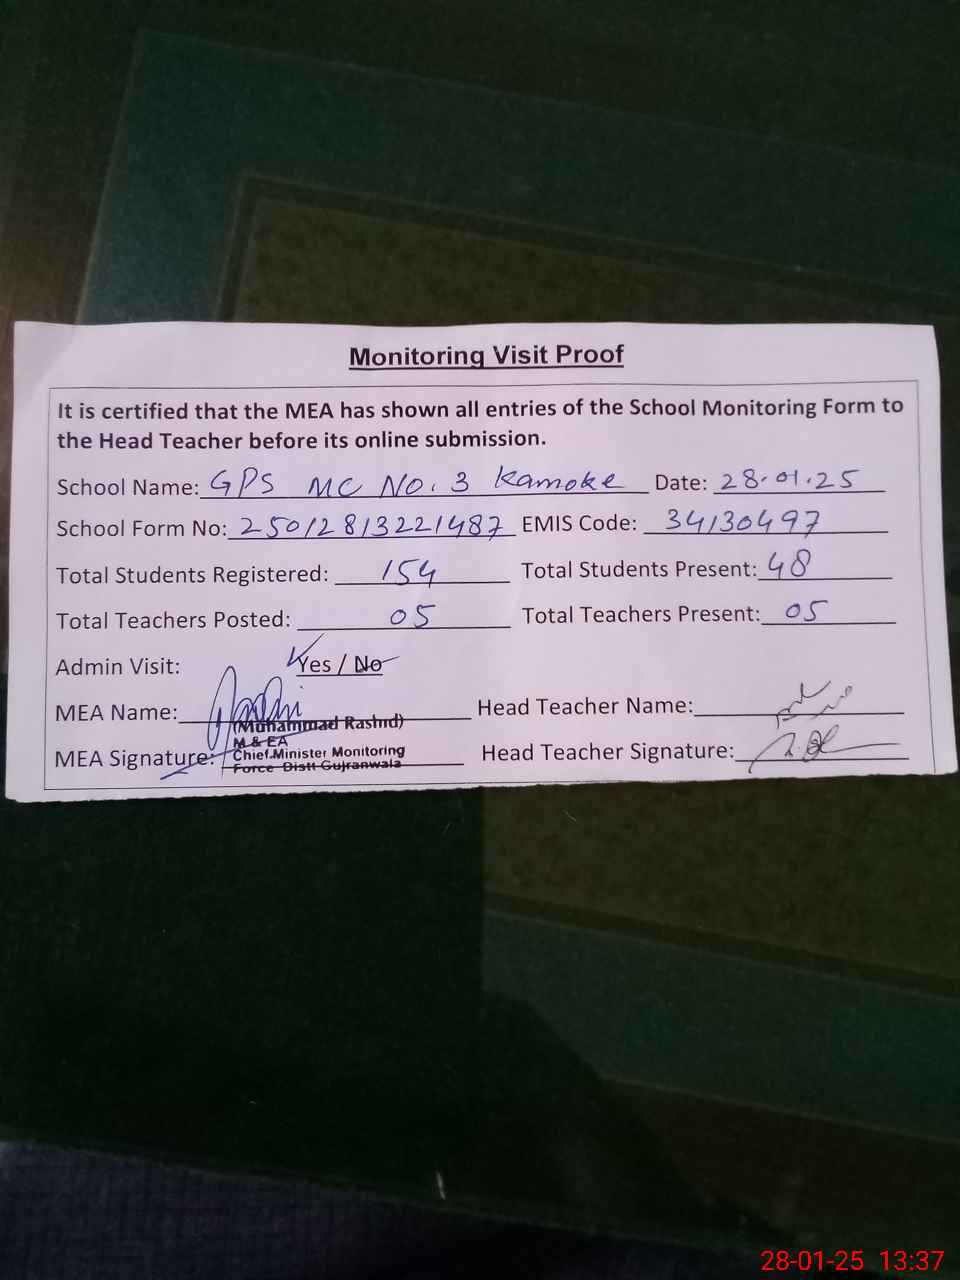 Monitoring Visit Proof
It is certified that the MEA has shown all entries of the School Monitoring Form to
the Head Teacher before its online submission.
School Name: GPS MC No. 3 Kamoke Date: 28.01.25
School Form No: 25012813221487 EMIS Code: 34130497
Total Students Registered: 154 Total Students Present: 48
Total Teachers Posted: 05 Total Teachers Present: 05
Admin Visit: Yes / No
MEA Name: Head Teacher Name:
(Muhammad Rashid)
M & EA
MEA Signature: Chief Minister Monitoring Head Teacher Signature:
Force Distt Gujranwala
28-01-25 13:37